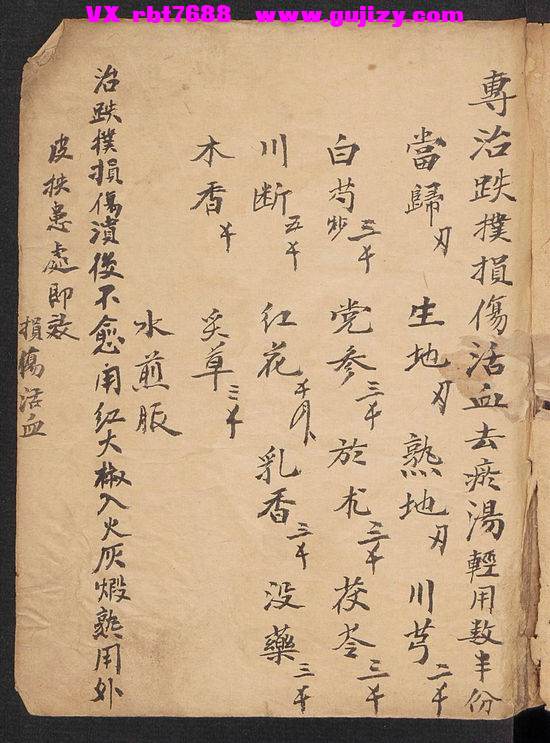 VX rbt7688 www.gujizy.com
專治跌撲損傷活血去瘀湯輕用数半份
當歸刄 生地刄 熟地刄 川芎二千
白芍炒三千 党参三千 於朮三千 茯苓三千
川断五千 红花 乳香三千 没藥三千
木香千 炙草三千
水煎服
治跌撲損傷潰後不愈用红大椒入火灰煅熟用外
皮扶患處即效
損傷活血